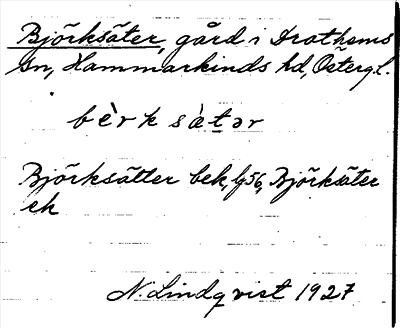 Björksäter, gård i Drothems
sn, Hammarkinds hd, Östergl.
bèrksàtər
Björksätter bek, Björksäter
rk
N. Lindqvist 1927